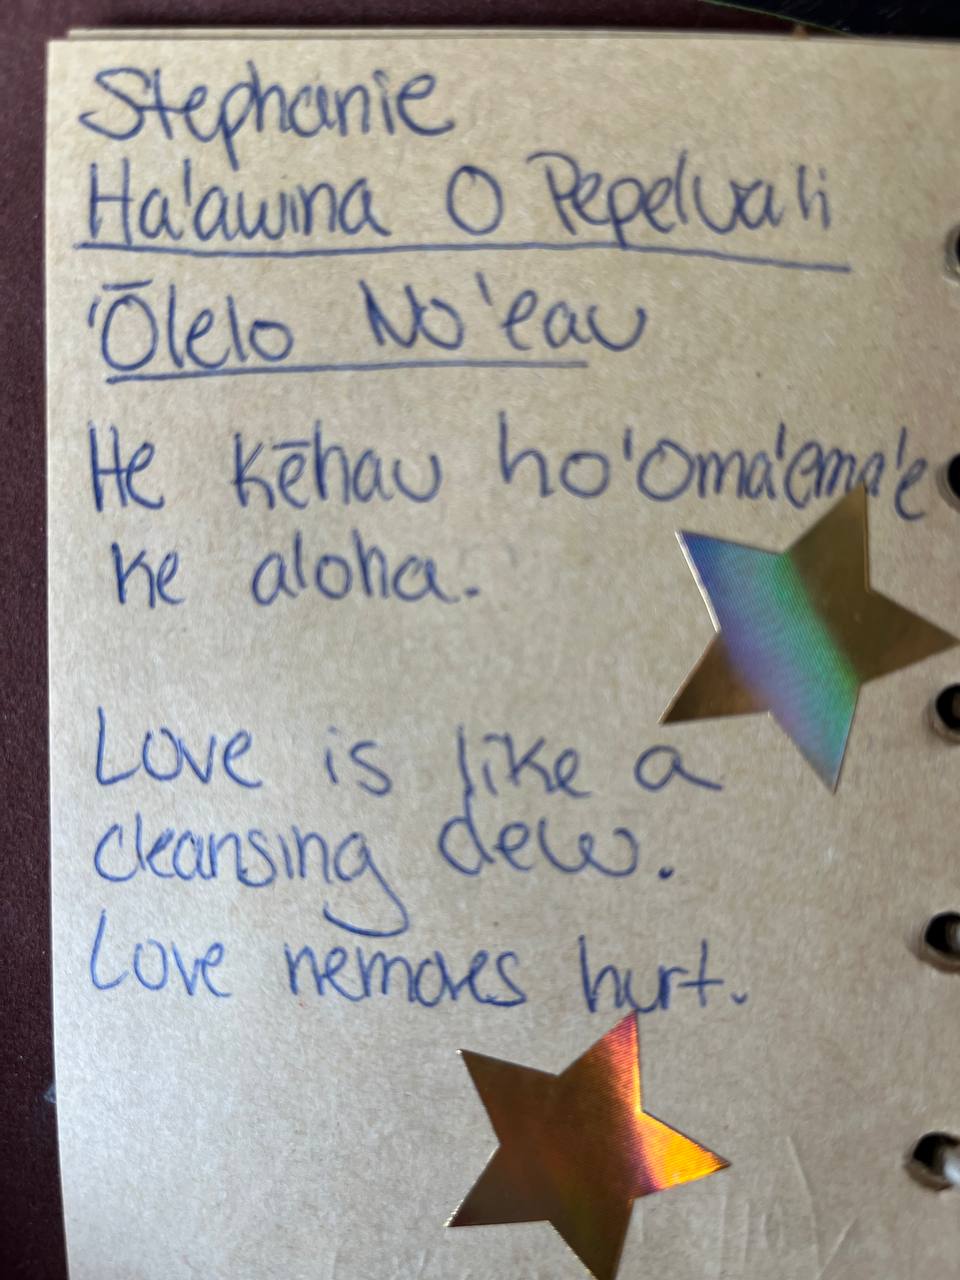 Stephanie
Ha'awina O Pepeluali
'Ōlelo No'eau
He kēhau ho'oma'ema'e
ke aloha.
Love is like a
cleansing dew.
Love removes hurt.